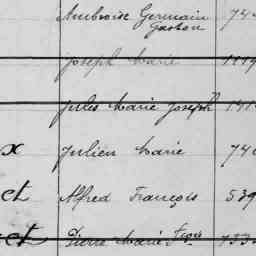 Ambroise Germain 74
Gaston
Joseph Marie
Jules Marie Joseph
x Julien Marie 74
et Alfred François 539
et Pierre Marie Fçois